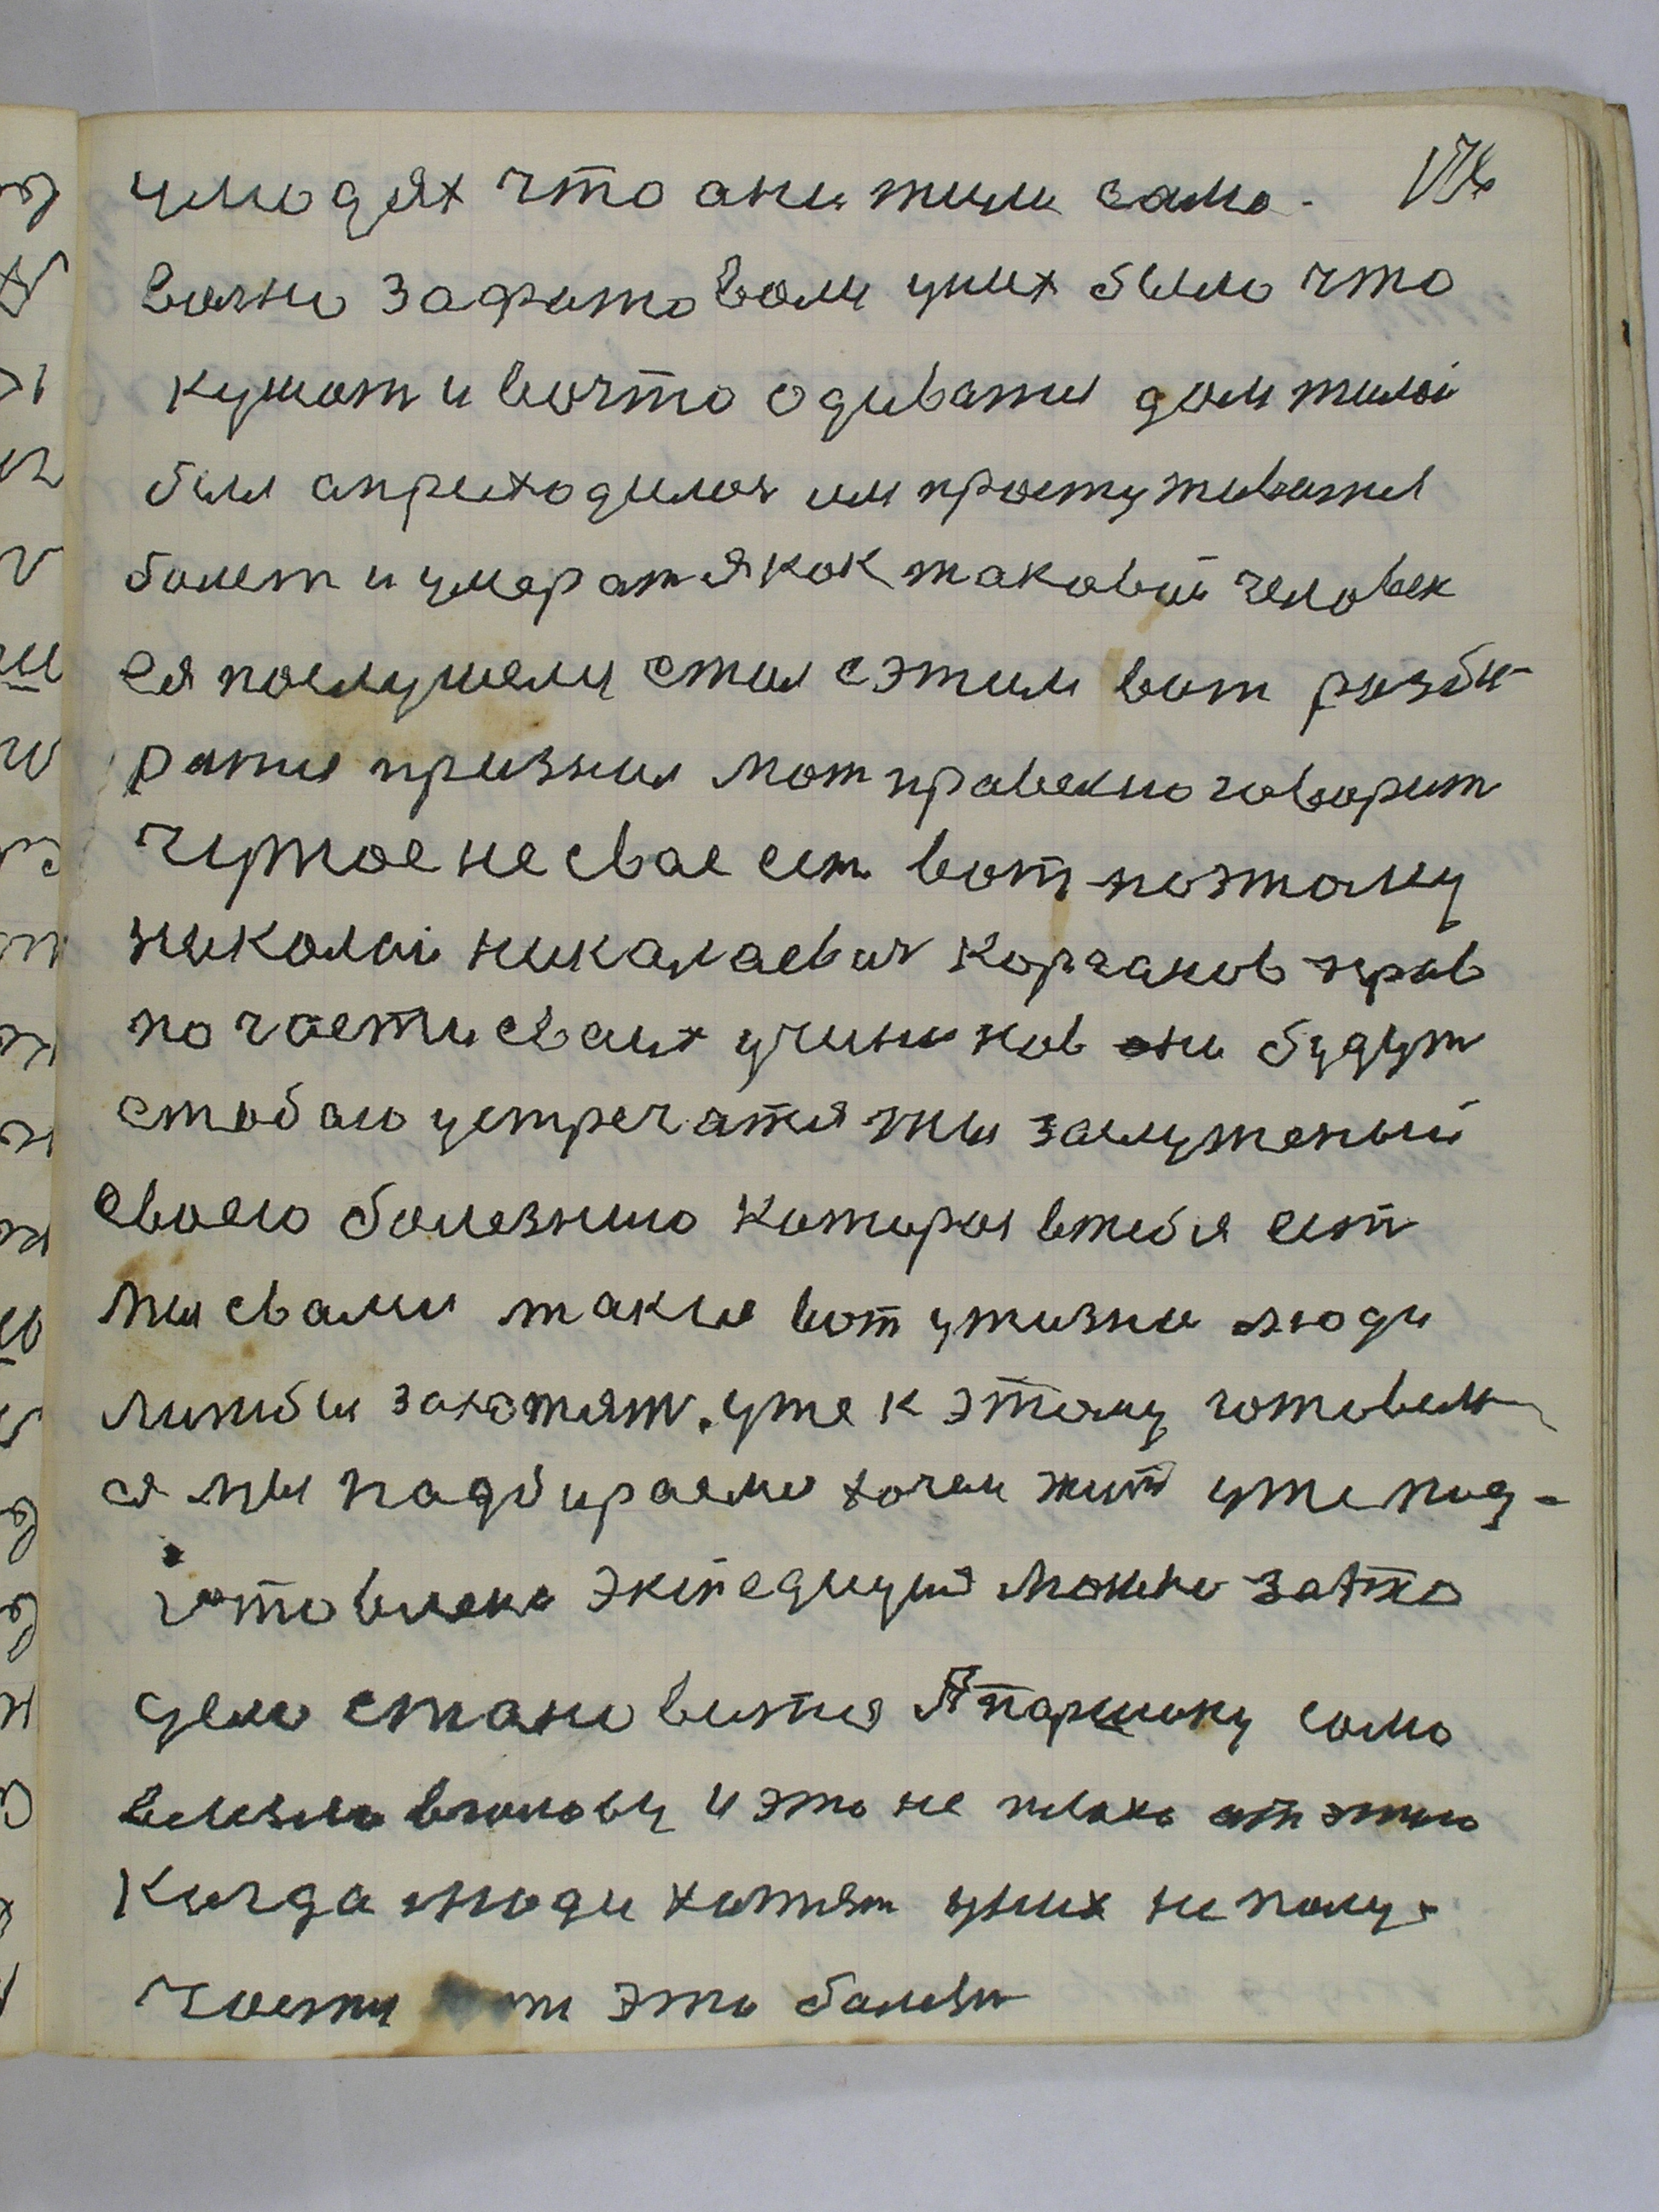 улюдях что ани жили само-
вочно зафртовали уних было что
кушат и вочто одиватся дом тилой
был априходилос им простуживатся
болет и умират я как таковый человек
ся послушали стал сэтим вот разби
ратся признал мот правелно говорит
чужое не свае ест вот поэтаму
николай никалаевич корчанов прав
по части сваих учиников они будут
стобаю устречатся ты заслуженый
своею болезнию которая втебя ест
мы свами такие вот ужизни люди
лижбы захотят. уже к этаму готовим
ся мы падбираемо хочем жит уже под-
готовлена экспедиция можно затко
дело становится Япаршику само
влезло вголову и это не плохо ат этого
Когда люди хотят уних не полу-
чается это болезн